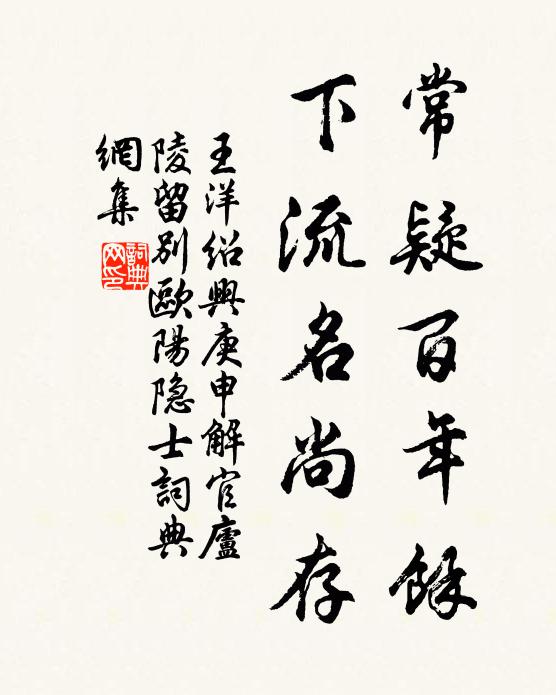 常疑百年餘
下流名尚存
王洋紹興庚申解官廬
陵留別歐陽隐士詞典
網集
詞典網印